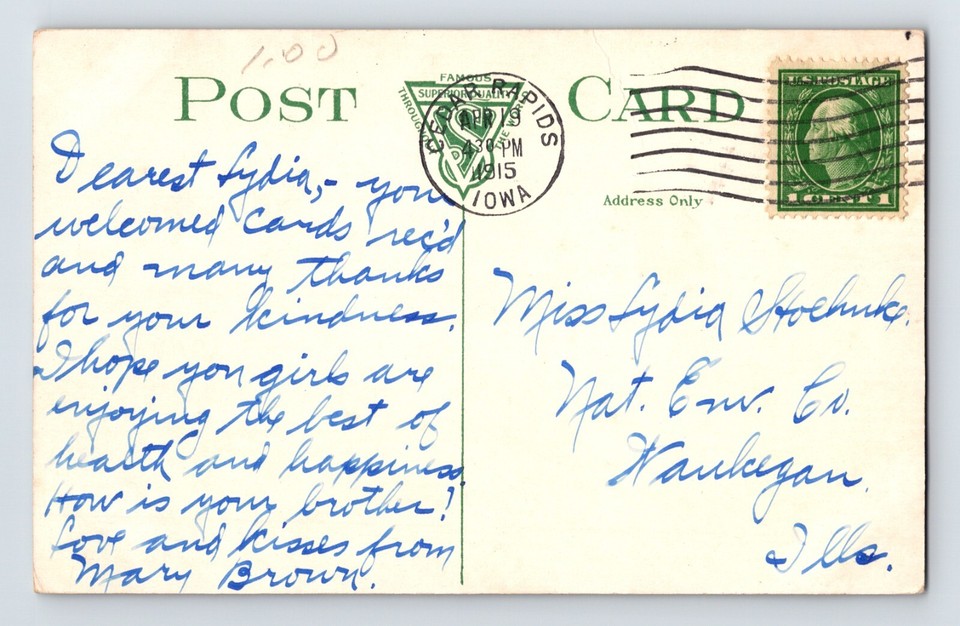 1.00
POST CARD
FAMOUS
SUPERIOR QUALITY
THROUGHOUT THE WORLD
CEDAR RAPIDS
APR 19
430 PM
1915
IOWA
U.S. POSTAGE
1 CENT 1
Address Only
Dearest Lydia,- your
welcomed cards rec'd
and many thanks
for your kindness.
I hope you girls are
enjoying the best of
health and happiness.
How is your brother?
Love and kisses from
Mary Brown.
Miss Lydia
Nat. Env. Co.
Waukegan.
Ills.